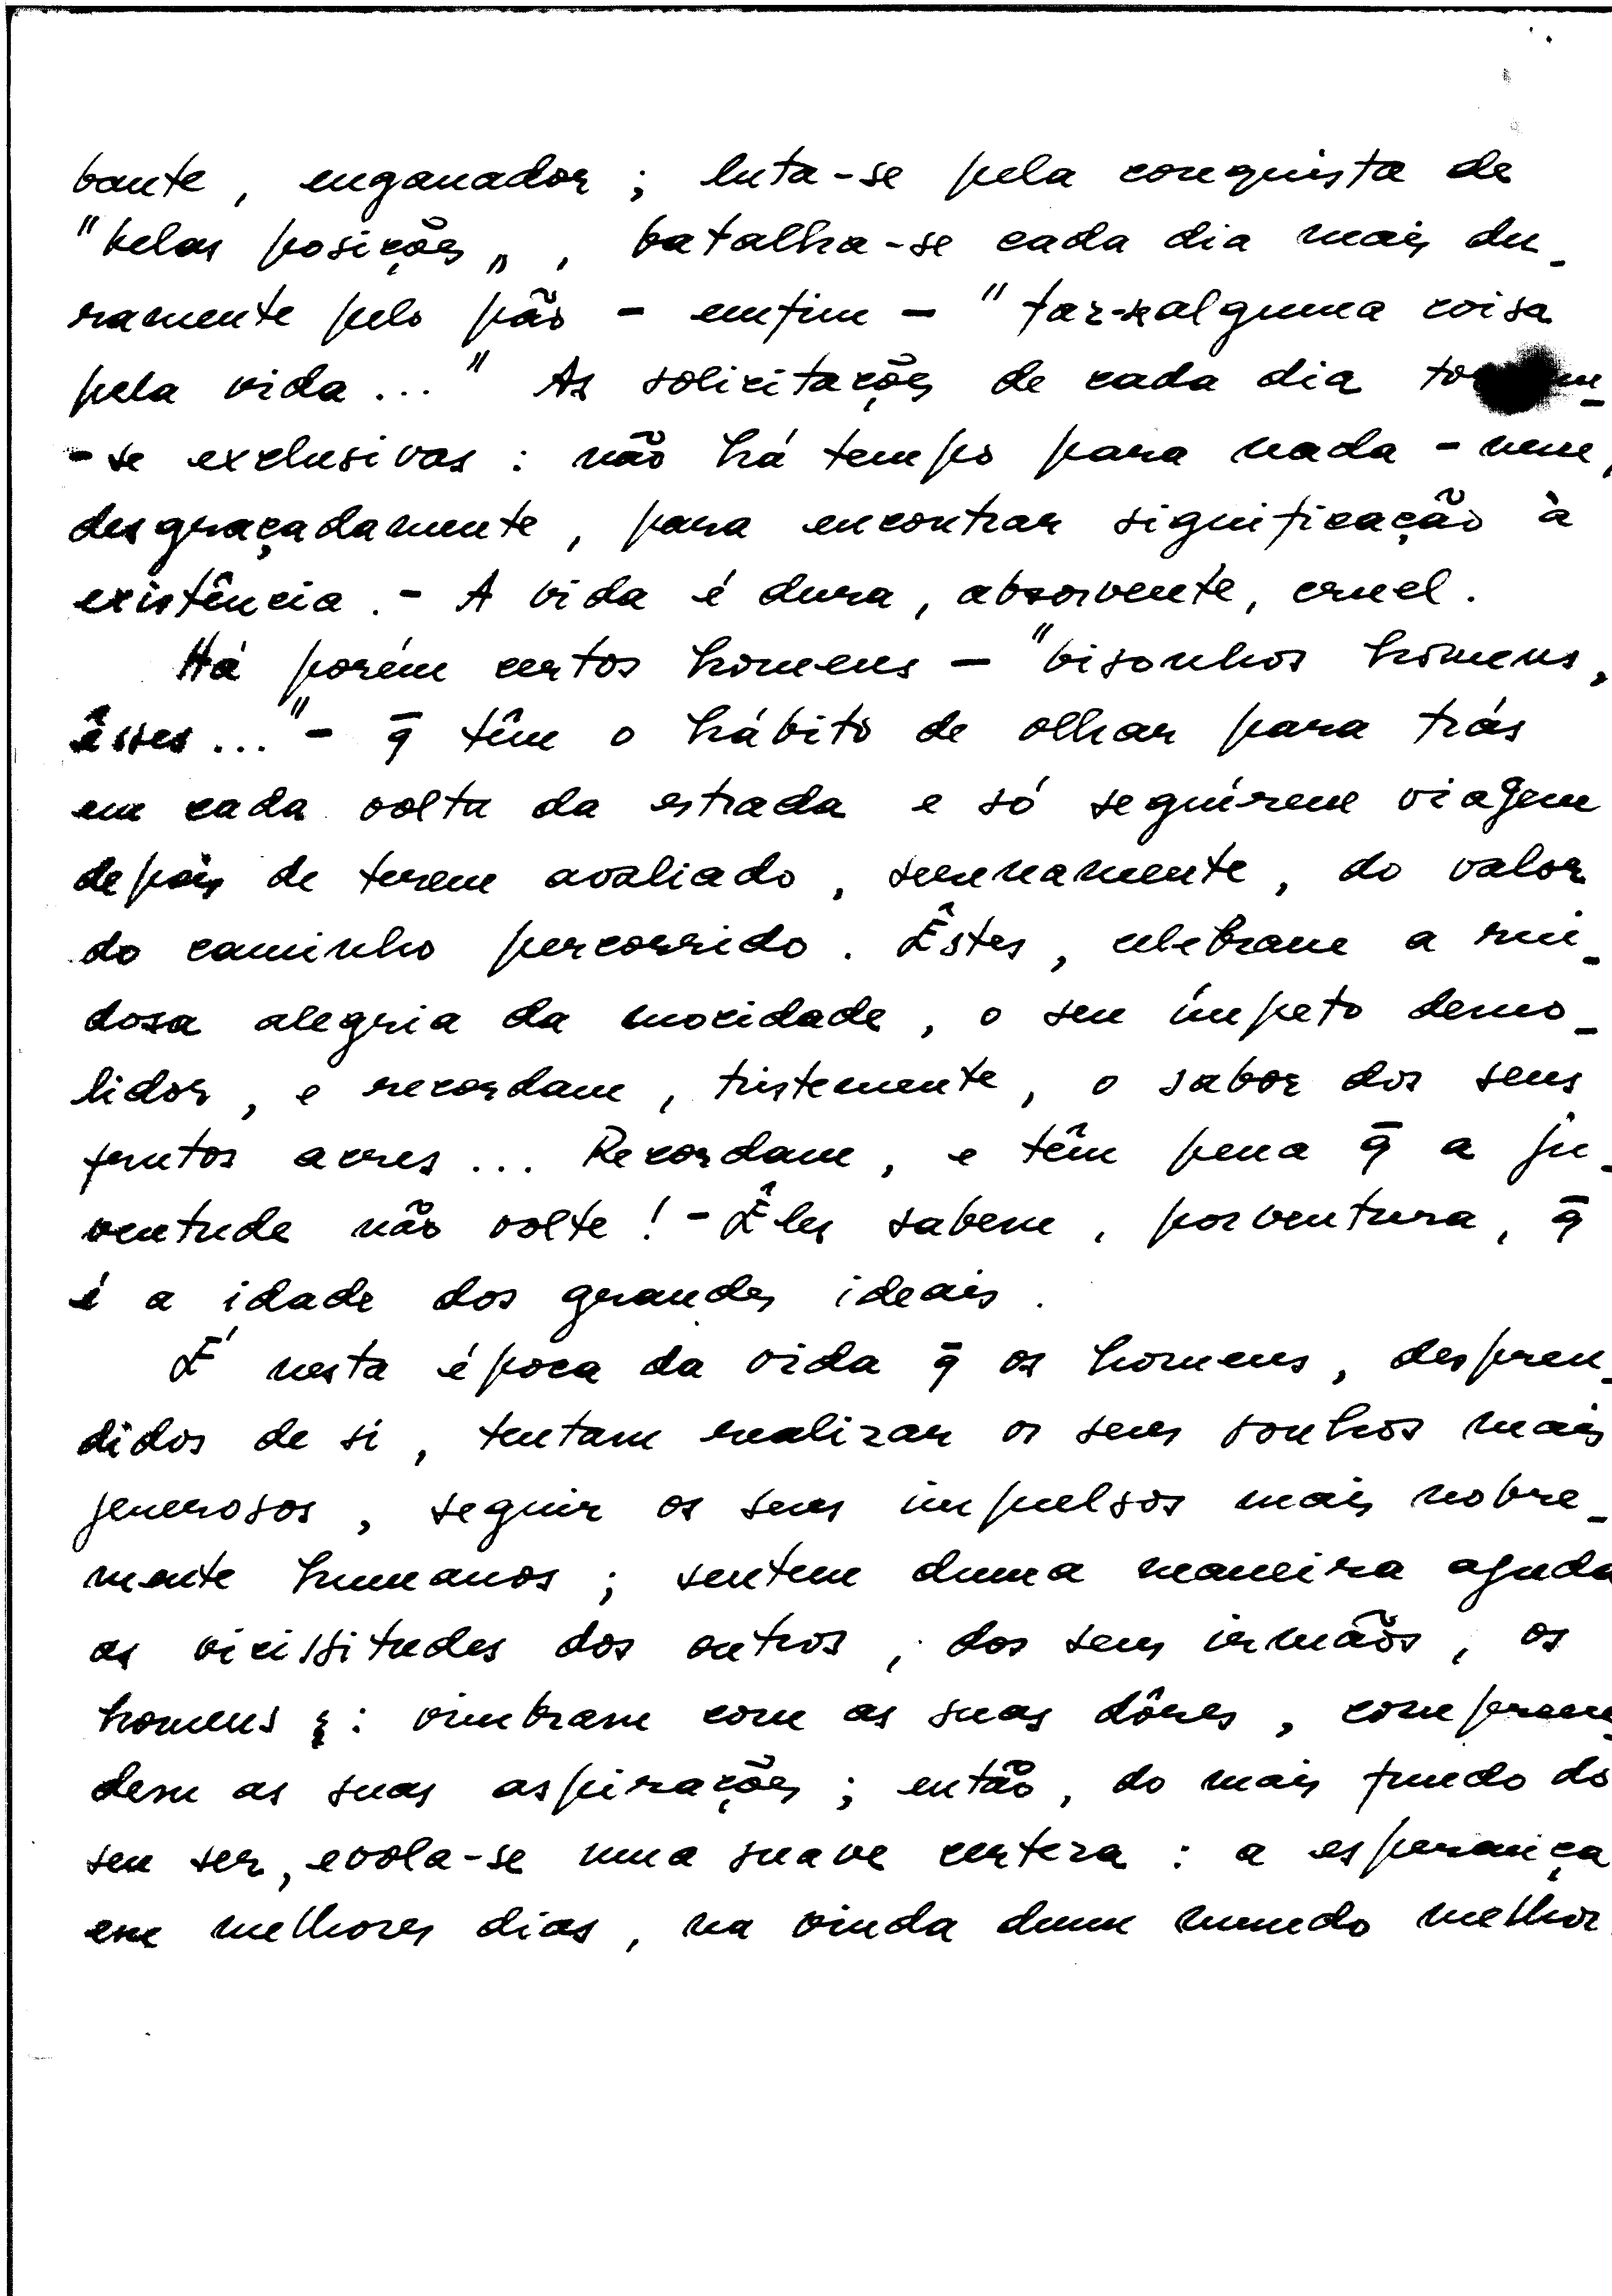 bante, enganador; luta-se pela conquista de
"belas posições", batalha-se cada dia mais du-
ramente pelo pão - emfim - "faz-se alguma coisa
pela vida..." As solicitações de cada dia
-se exclusivas: não há tempo para nada - nem,
desgraçadamente, para encontrar significação à
existência. - A vida é dura, absorvente, cruel.
Há porém certos homens - "bisonhos homens,
êsses..." - q̄ têm o hábito de olhar para trás
em cada volta da estrada e só seguirem viagem
depois de terem avaliado, serenamente, do valor
do caminho percorrido. Êstes, celebram a rui-
dosa alegria da mocidade, o seu ímpeto demo-
lidor, e recordam, tristemente, o sabor dos seus
frutos acres... Recordam, e têm pena q̄ a ju-
ventude não volte! - Êles sabem, porventura, q̄
é a idade dos grandes ideais.
É nesta época da vida q̄ os homens, despren-
didos de si, tentam realizar os seus sonhos mais
generosos, seguir os seus impulsos mais nobre-
mente humanos; sentem duma maneira aguda
as vicissitudes dos outros, dos seus irmãos, os
homens: vimbram com as suas dôres, compreen-
dem as suas aspirações; então, do mais fundo do
seu ser, evola-se uma suave certeza: a esperança
em melhores dias, na vinda dum mundo melhor.